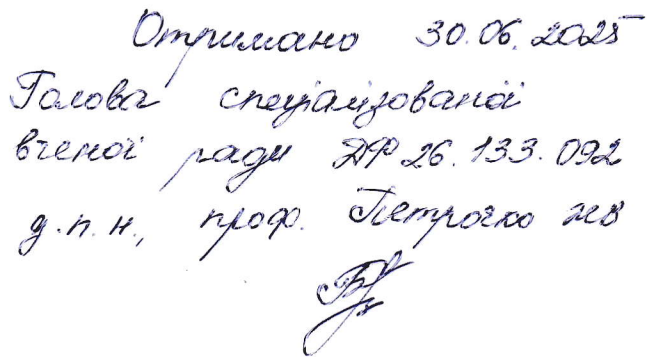 Отримано 30.06.2025
Голова спеціалізованої
вченої ради ДФ 26.133.092
д.п.н., проф. Петрочко ЖВ